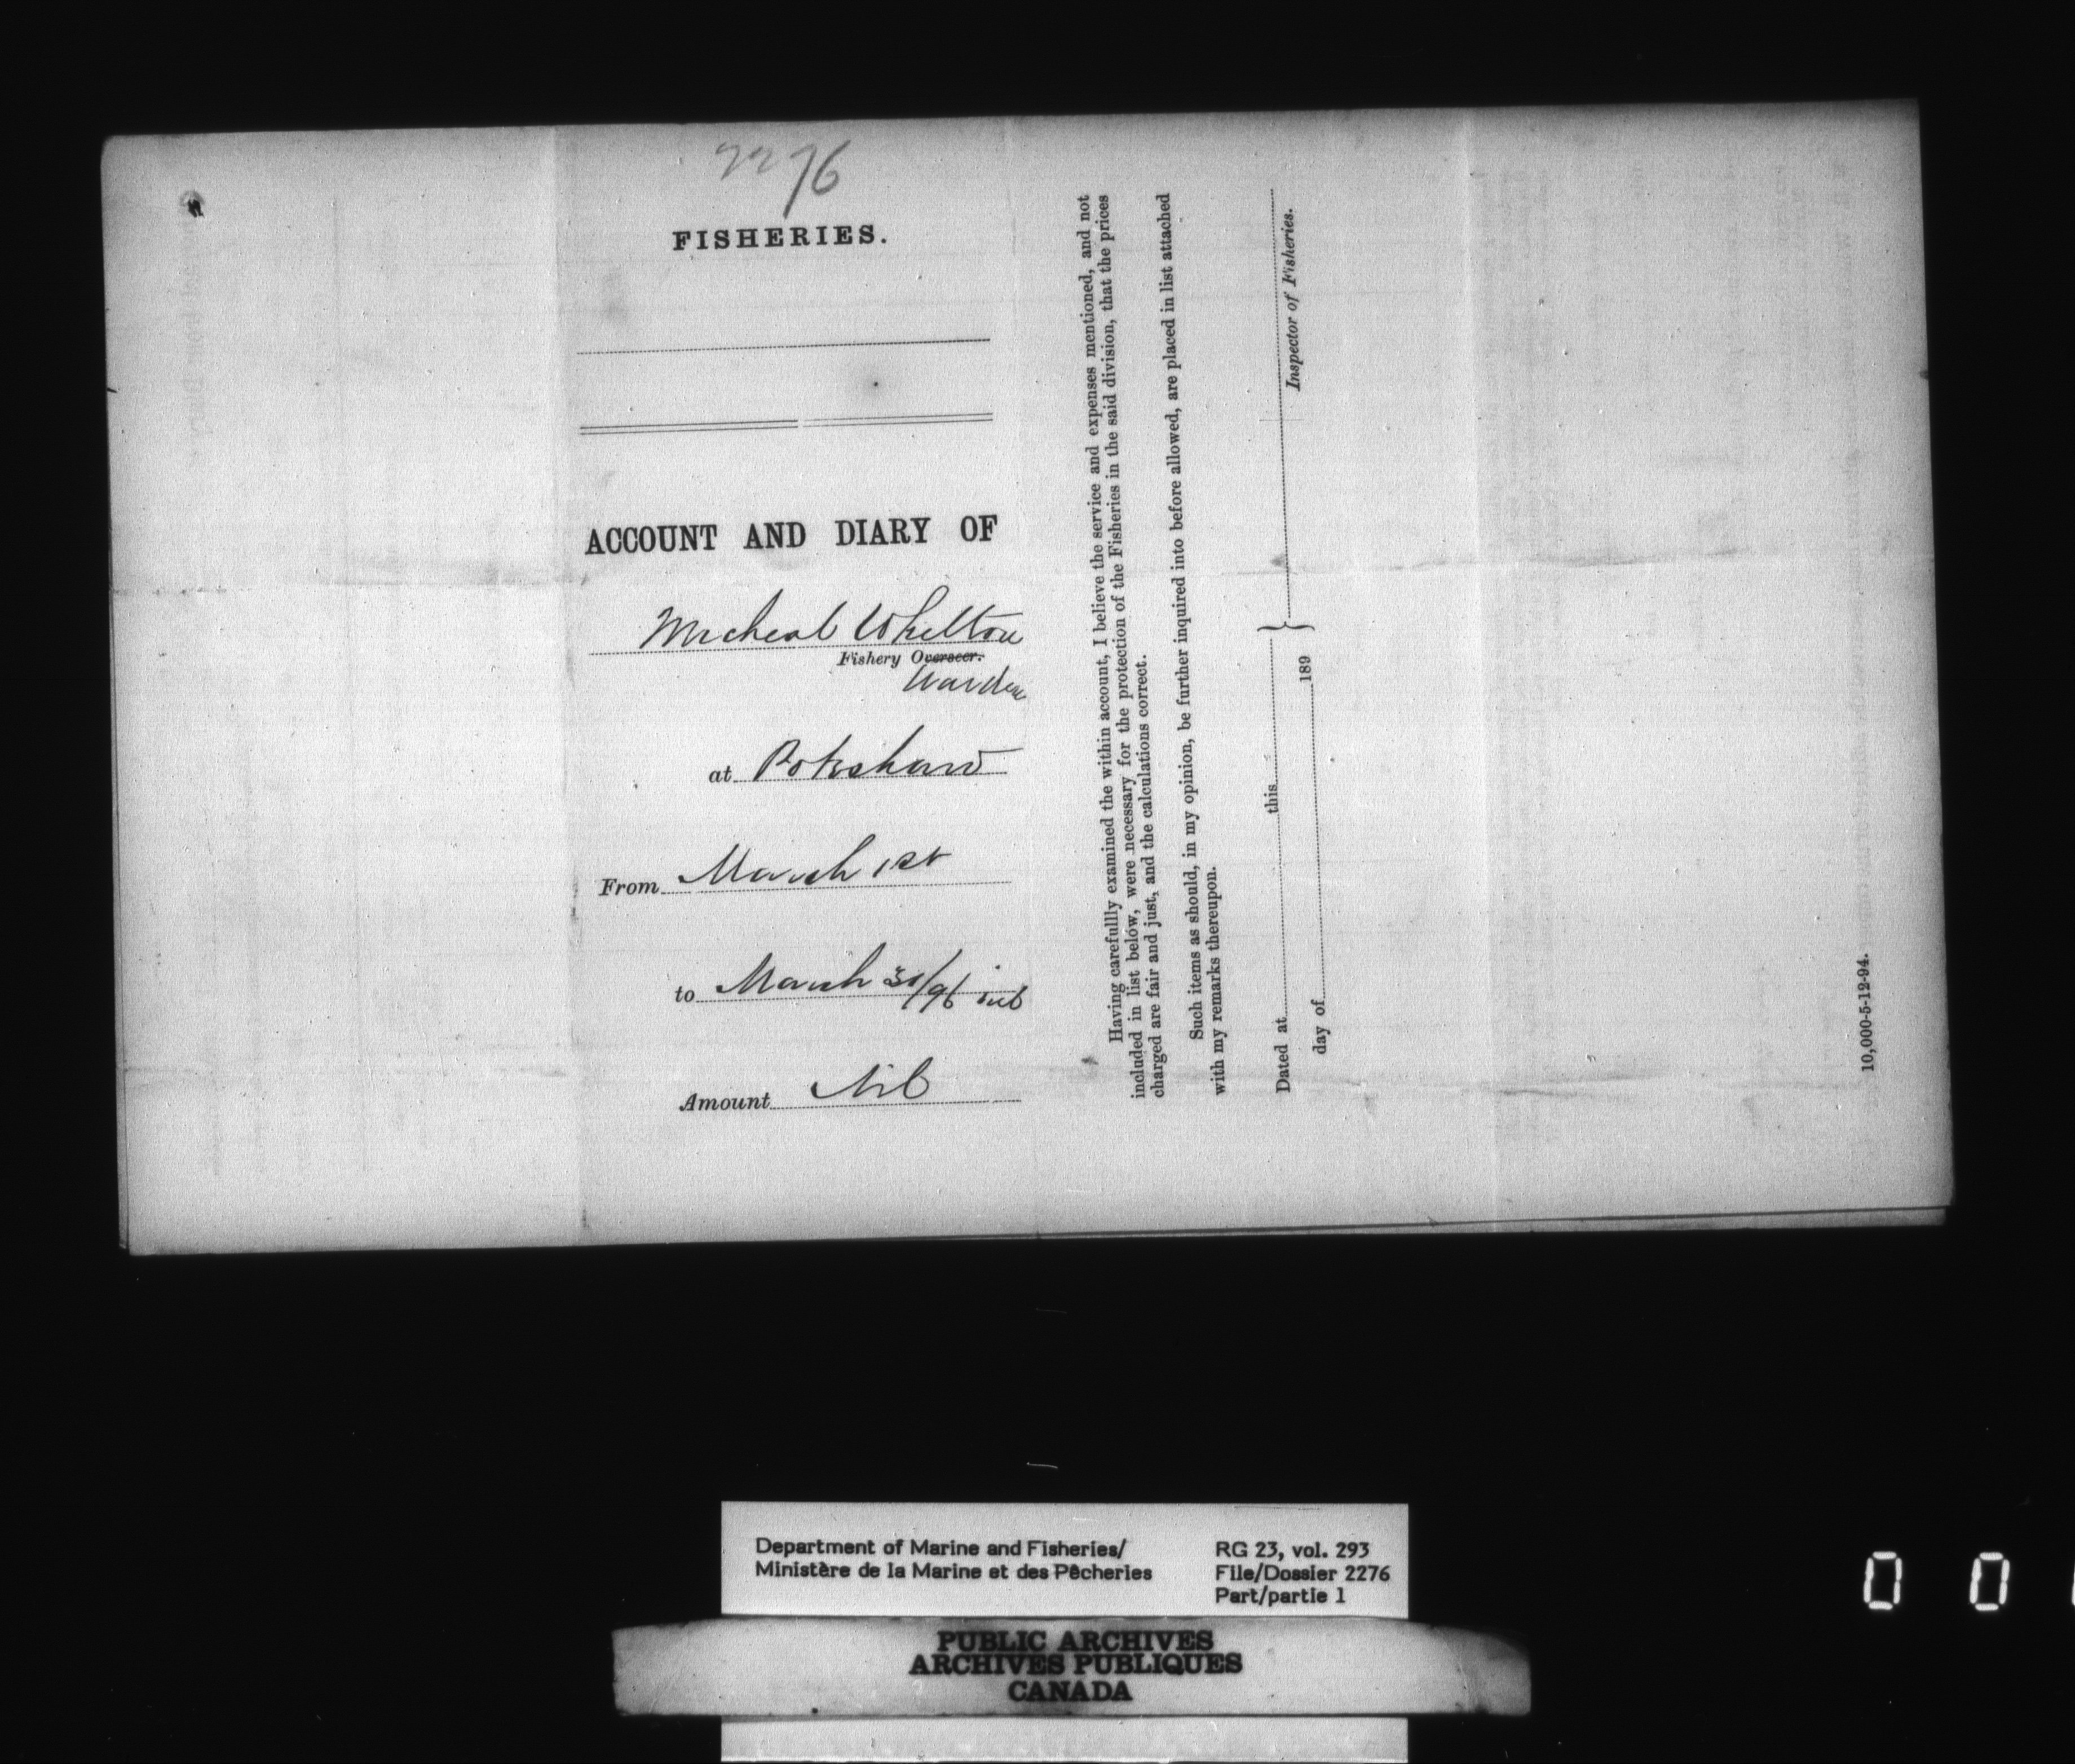 2276
FISHERIES.
ACCOUNT AND DIARY OF
Micheal Whelton
Fishery Overseer.
Warden
at Pokeshaw
From March 1st
to March 31/96
Amount Nil
Having carefullly examined the within account, I believe the service and expenses mentioned, and not
included in list below, were necessary for the protection of the Fisheries in the said division, that the prices
charged are fair and just, and the calculations correct.
Such items as should, in my opinion, be further inquired into before allowed, are placed in list attached
with my remarks thereupon.
Inspector of Fisheries.
Dated at this
day of 189
10,000-5-12-94.
Department of Marine and Fisheries/
Ministère de la Marine et des Pêcheries
RG 23, vol. 293
File/Dossier 2276
Part/partie 1
PUBLIC ARCHIVES
ARCHIVES PUBLIQUES
CANADA
0 0